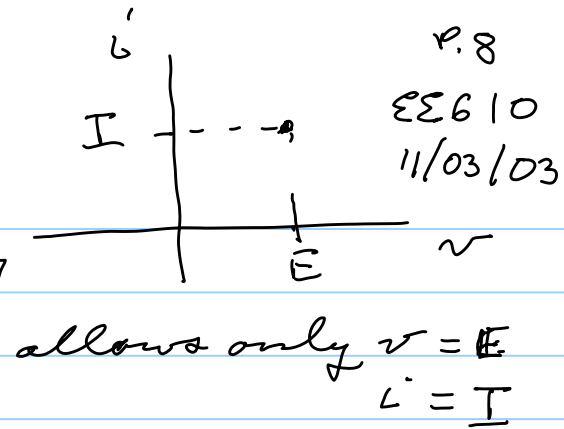 i
p. 8
I
EE610
11/03/03
v
E
allows only v = E
i = I